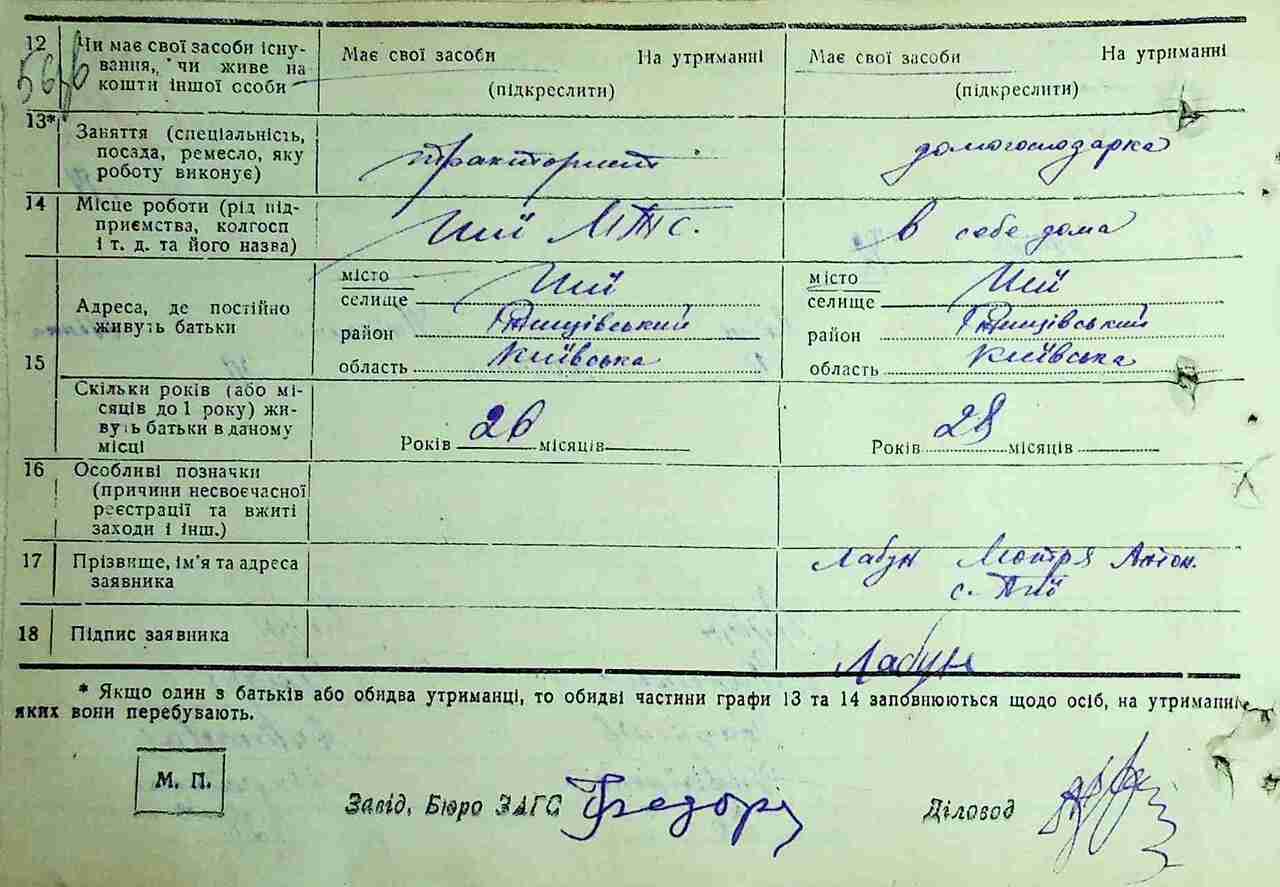 12 Чи має свої засоби існу-
вання, чи живе на
кошти іншої особи
Має свої засоби На утриманні
(підкреслити)
Має свої засоби На утриманні
(підкреслити)
13* Заняття (спеціальність,
посада, ремесло, яку
роботу виконує)
тракторист
домогосподарка
14 Місце роботи (рід під-
приємства, колгосп
і т. д. та його назва)
Пії МТС.
в себе дома
15 Адреса, де постійно
живуть батьки
місто
селище Пії
район Ржищівський
область Київська
місто
селище Пії
район Ржищівський
область Київська
Скільки років (або мі-
сяців до 1 року) жи-
вуть батьки в даному
місці
Років 26 місяців
Років 28 місяців
16 Особливі позначки
(причини несвоєчасної
реєстрації та вжиті
заходи і інш.)
17 Прізвище, ім'я та адреса
заявника
Лабун Мотря Антон.
с. Пії
18 Підпис заявника
Лабун
* Якщо один з батьків або обидва утриманці, то обидві частини графи 13 та 14 заповнюються щодо осіб, на утриманні
яких вони перебувають.
М. П.
Завід. Бюро ЗАГС Федор
Діловод